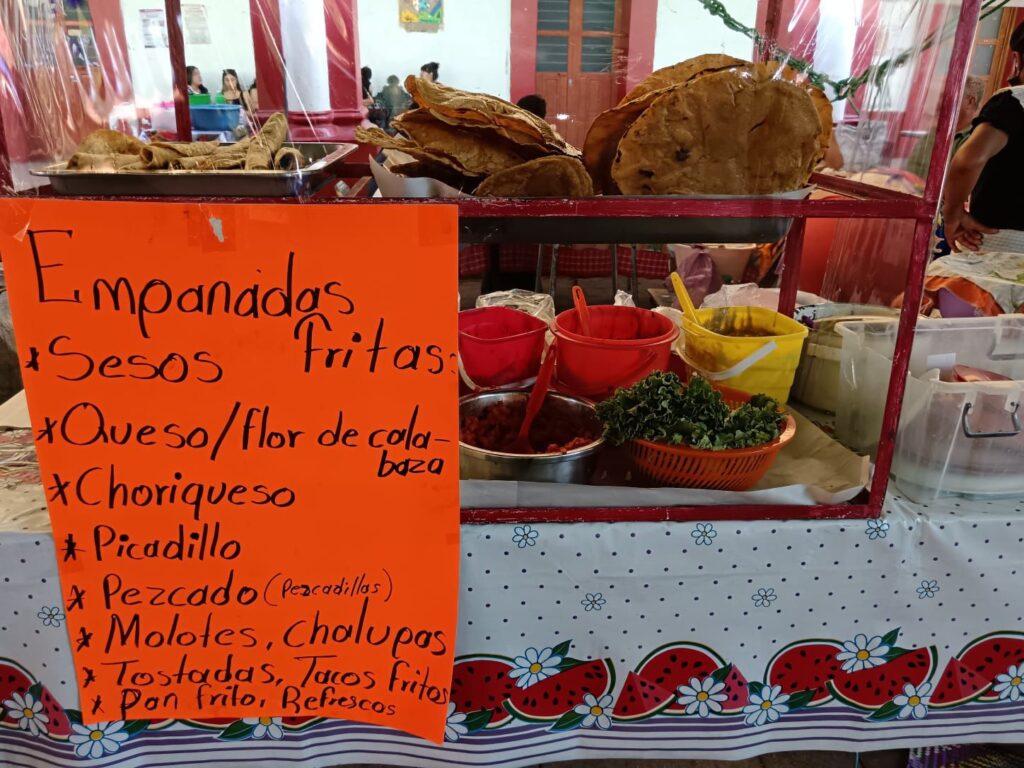 Empanadas
fritas:
* Sesos
* Queso/flor de cala-
baza
* Choriqueso
* Picadillo
* Pezcado (Pezcadillas)
* Molotes, Chalupas
* Tostadas, Tacos fritos
* Pan frito, Refrescos